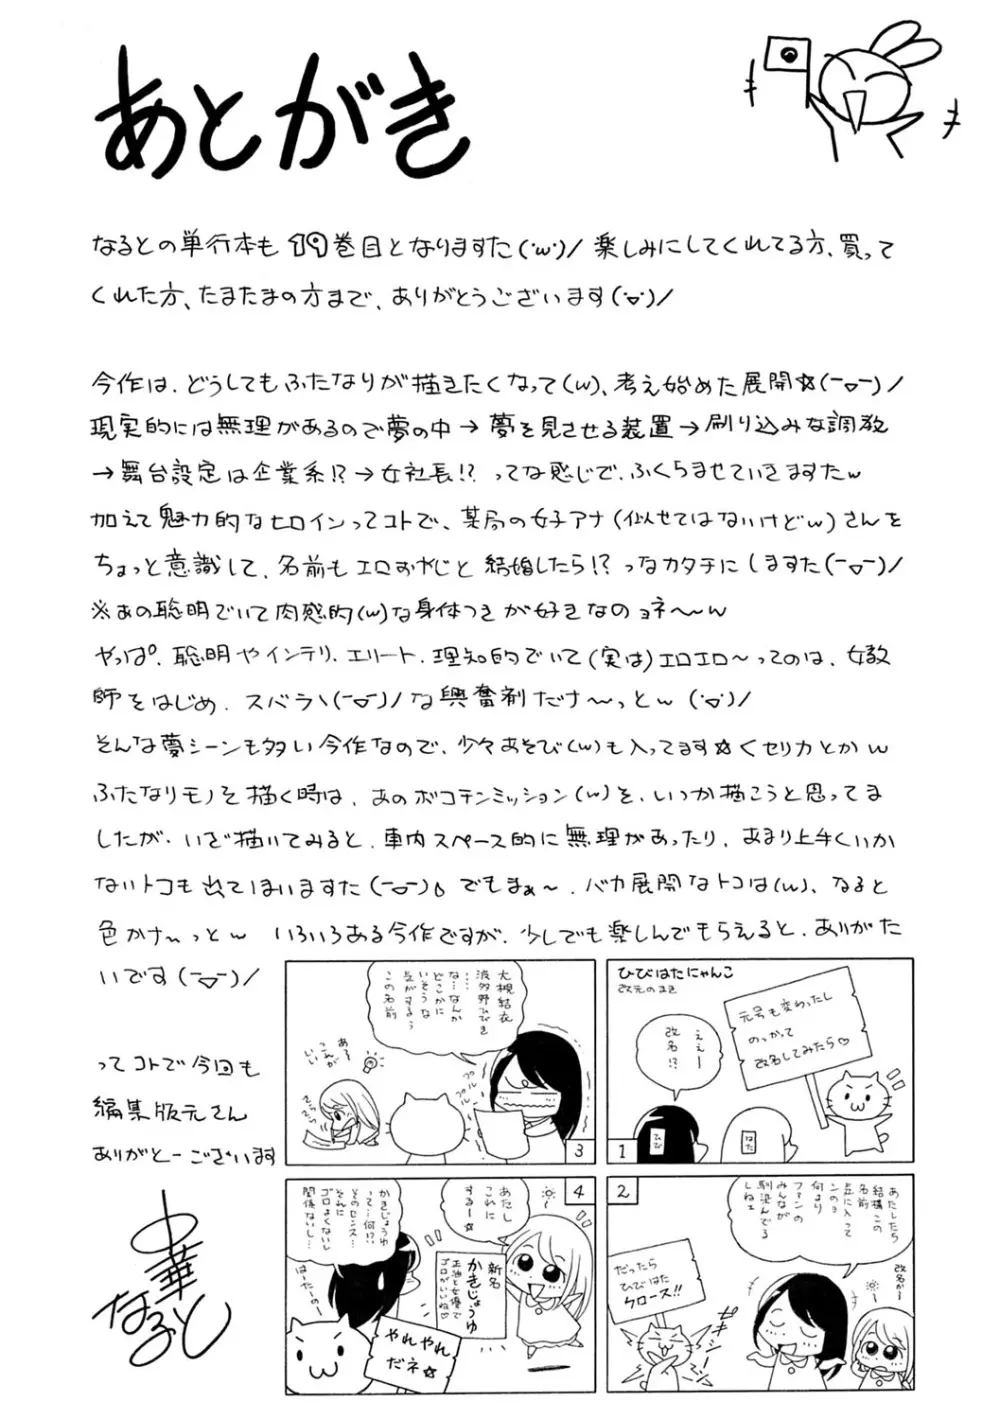 あとがき
なるとの単行本も19巻目となりますた(･w･)/ 楽しみにしてくれてる方、買って
くれた方、たまたまの方まで、ありがとうございます(･▽･)/
今作は、どうしてもふたなりが描きたくなって(w)、考え始めた展開☆(ー▽ー)/
現実的には無理があるので夢の中→夢を見させる装置→刷り込みな調教
→舞台設定は企業系!?→女社長!? ってな感じで、ふくらませていきますたw
加えて魅力的なヒロインってコトで、某局の女子アナ(似せてはないけどw)さんを
ちょっと意識して、名前もエロおやじと結婚したら!? っなカタチにしますた(ー▽ー)/
※あの聡明でいて肉感的(w)な身体つきが好きなのョネ〜〜w
やっぱ、聡明やインテリ、エリート、理知的でいて(実は)エロエロ〜ってのは、女教
師をはじめ、スバラ\(ー▽ー)/な興奮剤だナ〜っとw (･▽･)/
そんな夢シーンも多い今作なので、少々あそび(w)も入ってます☆くセリカとかw
ふたなりモノを描く時は、あのボコチンミッション(w)を、いつか描こうと思ってま
したが、いざ描いてみると、車内スペース的に無理があったり、あまり上手くいか
ないトコも出てしまいますた(ー▽ー)。でもまぁ〜、バカ展開なトコは(w)、なると
色かナ〜っとw いろいろある今作ですが、少しでも楽しんでもらえると、ありがた
いです(ー▽ー)/
ってコトで今回も
編集版元さん
ありがとーございます
中華
なると
ひびはたにゃんこ
改元のまき
元号も変わったし
のっかって
改名してみたら♡
ええー
改名!?
ひび
はた
1
2
あたしたち
結構この
名前
気に入って
ンのョ
何より
ファンの
みんなが
馴染んでる
しねェ
改名かー
だったら
ひびはた
クロース!!
3
大槻結衣
波多野ひびき
……
な…なんか
どこかに
いそうな
気がするぅ
この名前
プルプル
あるっ
こんなが
いい
4
あたし
これに
するー☆
新名
かきじょうゆ
正油と女優で
ゴロがいいね♡
かきじょうゆ
って…何!?
そのセンス…
それに
ゴロよくないし
関係ないし…
はったーのー
やれやれ
だネ☆